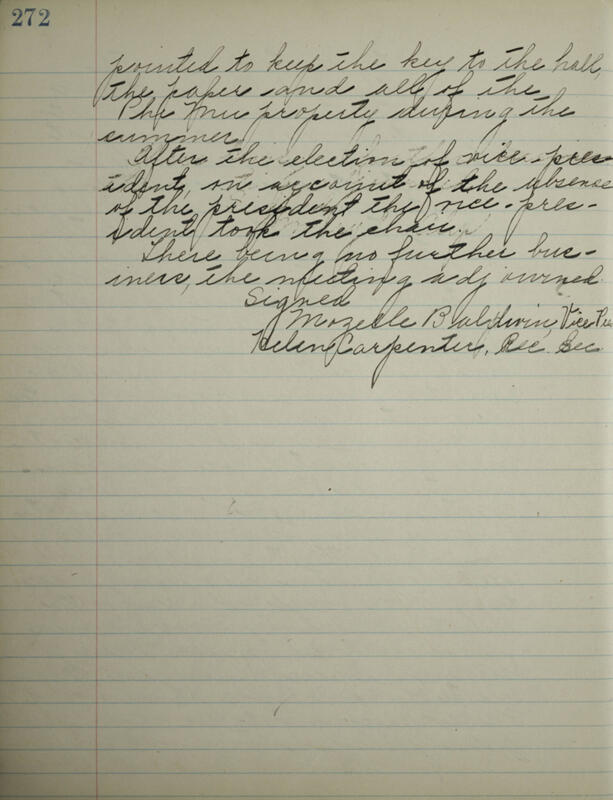 272
pointed to keep the key to the hall,
the paper and all of the
Phi Mu property during the
summer.
After the election of vice-pres-
ident, on account of the absence
of the president the vice-pres-
ident took the chair.
There being no further bus-
iness, the meeting adjourned
Signed
Mozelle Baldwin, Vice Pres
Helen Carpenter, Rec. Sec.